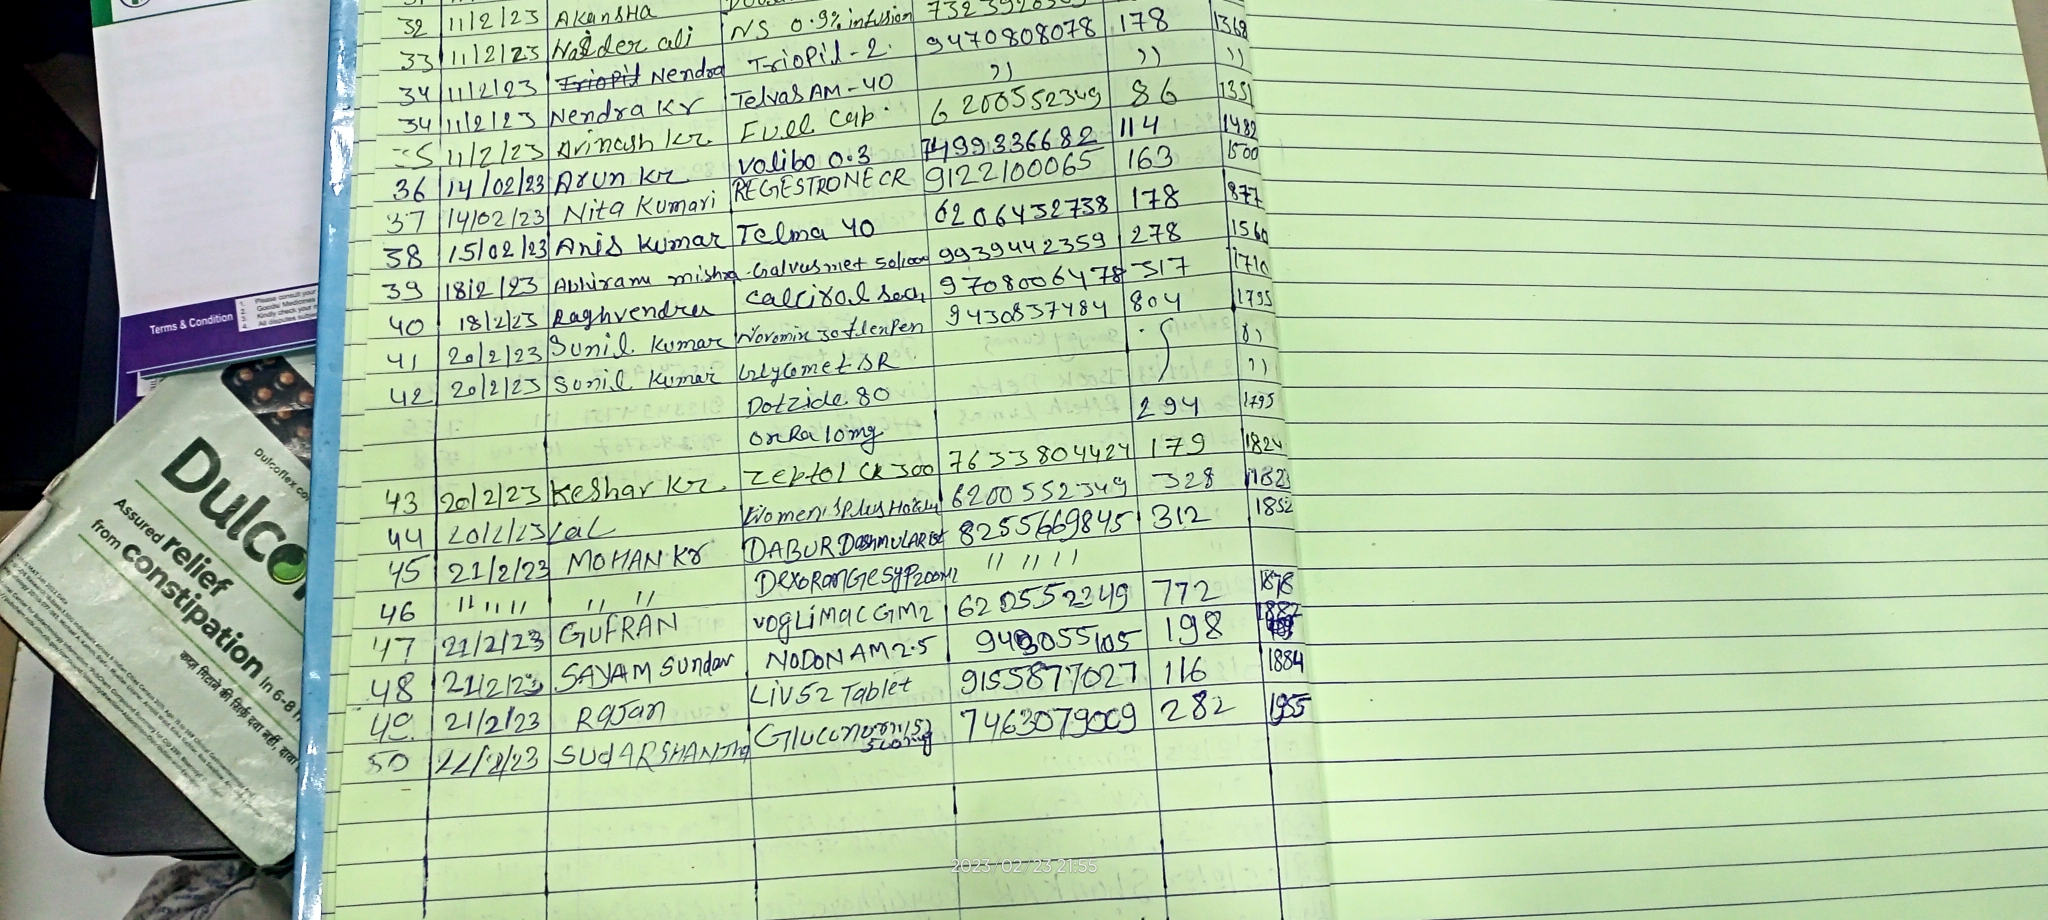 32 11/2/23 Akansha NS 0.9% infusion
33 11/2/23 Haider ali Triopil-2 9470808078 178 1368
34 11/2/23 Nendra Telvas AM-40 ,, ,, ,,
34 11/2/23 Nendra Kr Fuel Cap 6200552349 86 1351
35 11/2/23 Avinash Kr. Volibo 0.3 7499336682 114 1482
36 14/02/23 Arun Kr. REGESTRONE CR 9122100065 163 1500
37 14/02/23 Nita Kumari Telma 40 6206432738 178 877
38 15/02/23 Anis Kumar Galvusmet 50/1000 9939442359 278 1560
39 18/2/23 Abhiram mishra Calcirol sach 9708006478 317 1710
40 18/2/23 Raghvendra Novomix 30 flexPen 9430837484 804 1795
41 20/2/23 Sunil Kumar Glycomet SR ,,
42 20/2/23 Sunil Kumar Dotzide 80 ,,
onRa 10mg 294 1795
43 20/2/23 Keshar Kr. Zeptol CR 300 7633804424 179 1824
44 20/2/23 Lal Women's Plus Horlicks 6200552349 328 1823
45 21/2/23 MOHAN Kr DABUR Dashmularist 8255669845 312 1852
46 " " " " " " DexoRanGe Syp 200ml " " " "
47 21/2/23 GUFRAN VogLiMac GM2 6205552349 772 1878
48 21/2/23 SAYAM Sundar NODON AM 2.5 198 1887
49 21/2/23 Rajan Liv52 Tablet 9155877027 116 1884
50 22/2/23 SUDARSHAN Jha Gluconorm 7463079009 282 1955
Terms & Condition
1. Please consult your
2. Goods/Medicines
3. Kindly check your
4. All disputes
Dulcoflex.co
Dulco
Assured relief
from constipation in 6-8 h
कब्ज़ मिटाने की सिर्फ़ दवा नहीं,
2023/02/23 21:55